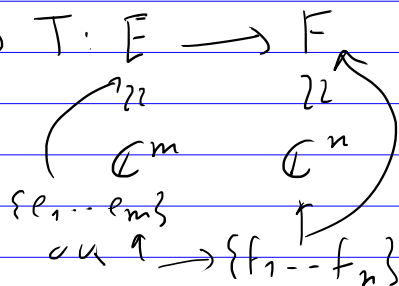 T : E → F
≀≀ ≀≀
ℂ^m ℂ^n
{e_1 -- e_m}
→ {f_1 -- f_n}